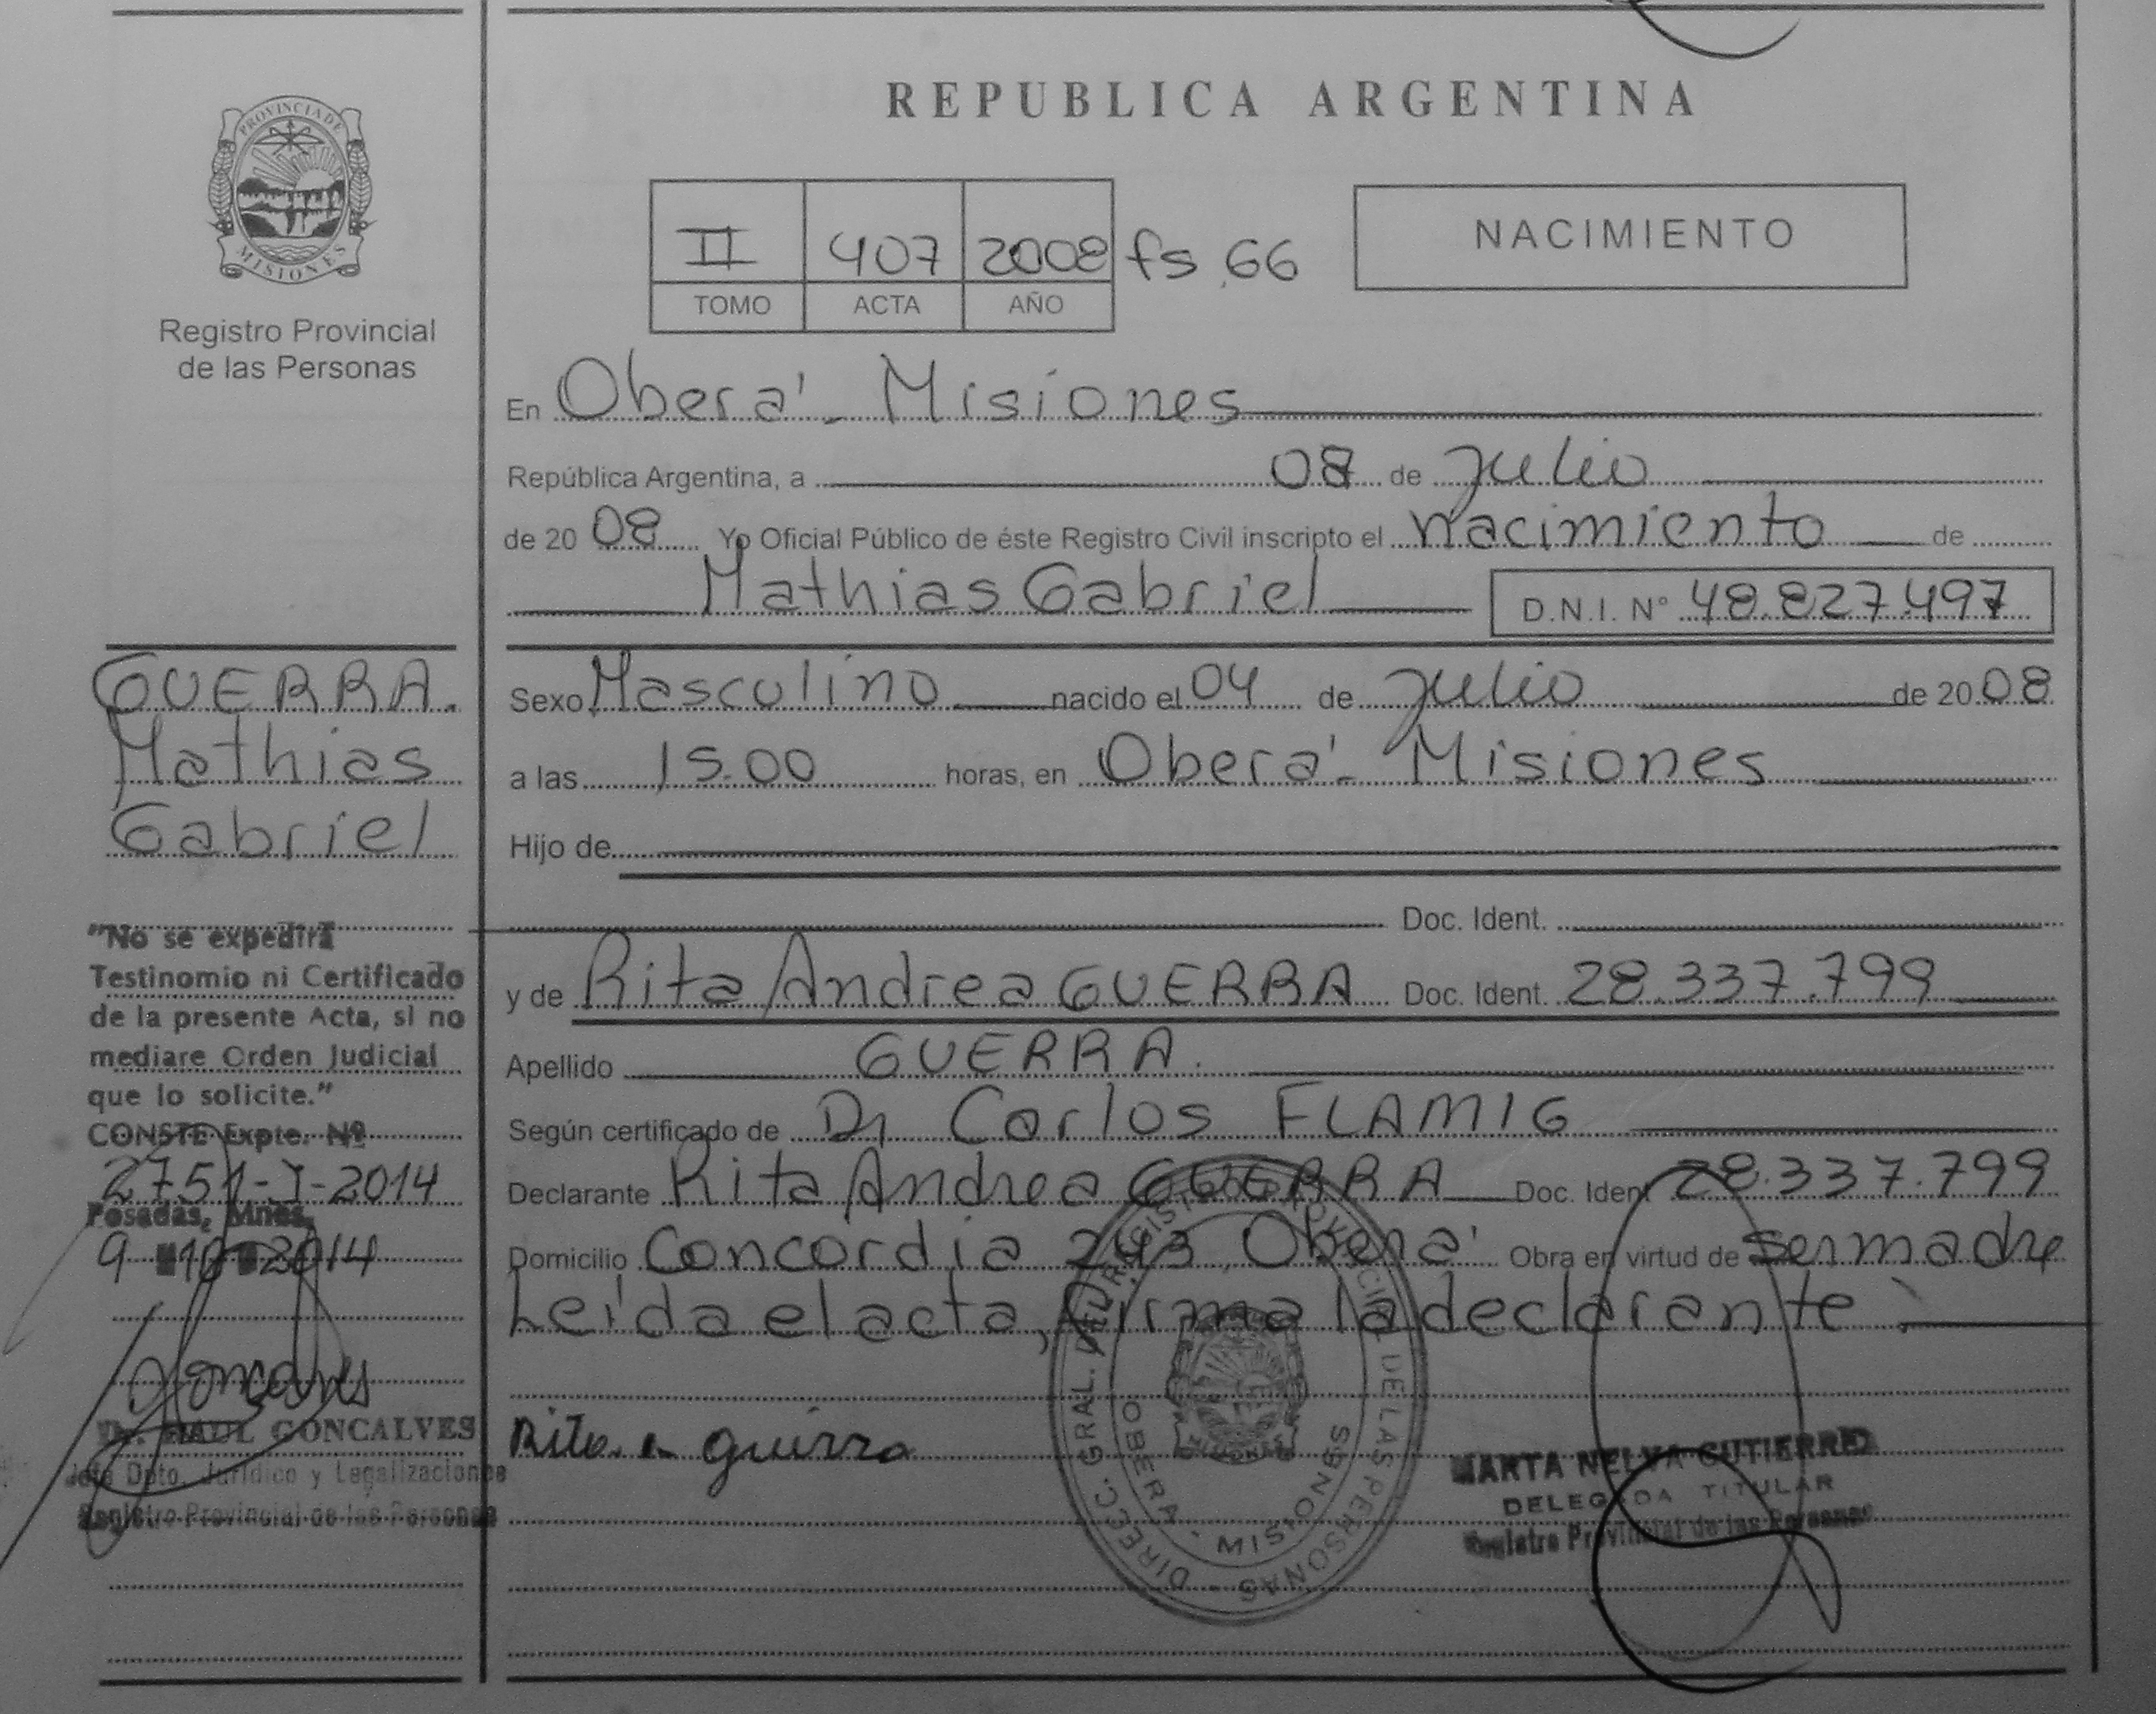 REPUBLICA ARGENTINA
PROVINCIA DE
MISIONES
Registro Provincial
de las Personas
II 407 2008 fs. 66
TOMO ACTA AÑO
NACIMIENTO
En Oberá - Misiones
República Argentina, a 08 de Julio
de 20 08 Yo Oficial Público de éste Registro Civil inscripto el nacimiento de
Mathias Gabriel D.N.I. N° 48.827.497
GUERRA.
Mathias
Gabriel
"No se expedirá
Testinomio ni Certificado
de la presente Acta, si no
mediare Orden Judicial
que lo solicite."
CONSTE Expte. Nº
2751-J-2014
Posadas, Mnes,
9 10 2014
Dr. RAUL GONCALVES
Jefe Dpto. Jurídico y Legalizaciones
Registro Provincial de las Personas
Sexo Masculino nacido el 04 de Julio de 20 08
a las 15.00 horas, en Oberá - Misiones
Hijo de
Doc. Ident.
y de Rita Andrea GUERRA Doc. Ident. 28.337.799
Apellido GUERRA.
Según certificado de Dr Carlos FLAMIG
Declarante Rita Andrea GUERRA Doc. Ident 28.337.799
Domicilio Concordia 243, Oberá Obra en virtud de ser madre
Leída el acta, firma la declarante.
Rita A guerra
DIREC. GRAL. DEL REGISTRO PROVINCIAL DE LAS PERSONAS
OBERA - MISIONES
MARTA NELVA GUTIERREZ
DELEGADA TITULAR
Registro Provincial de las Personas